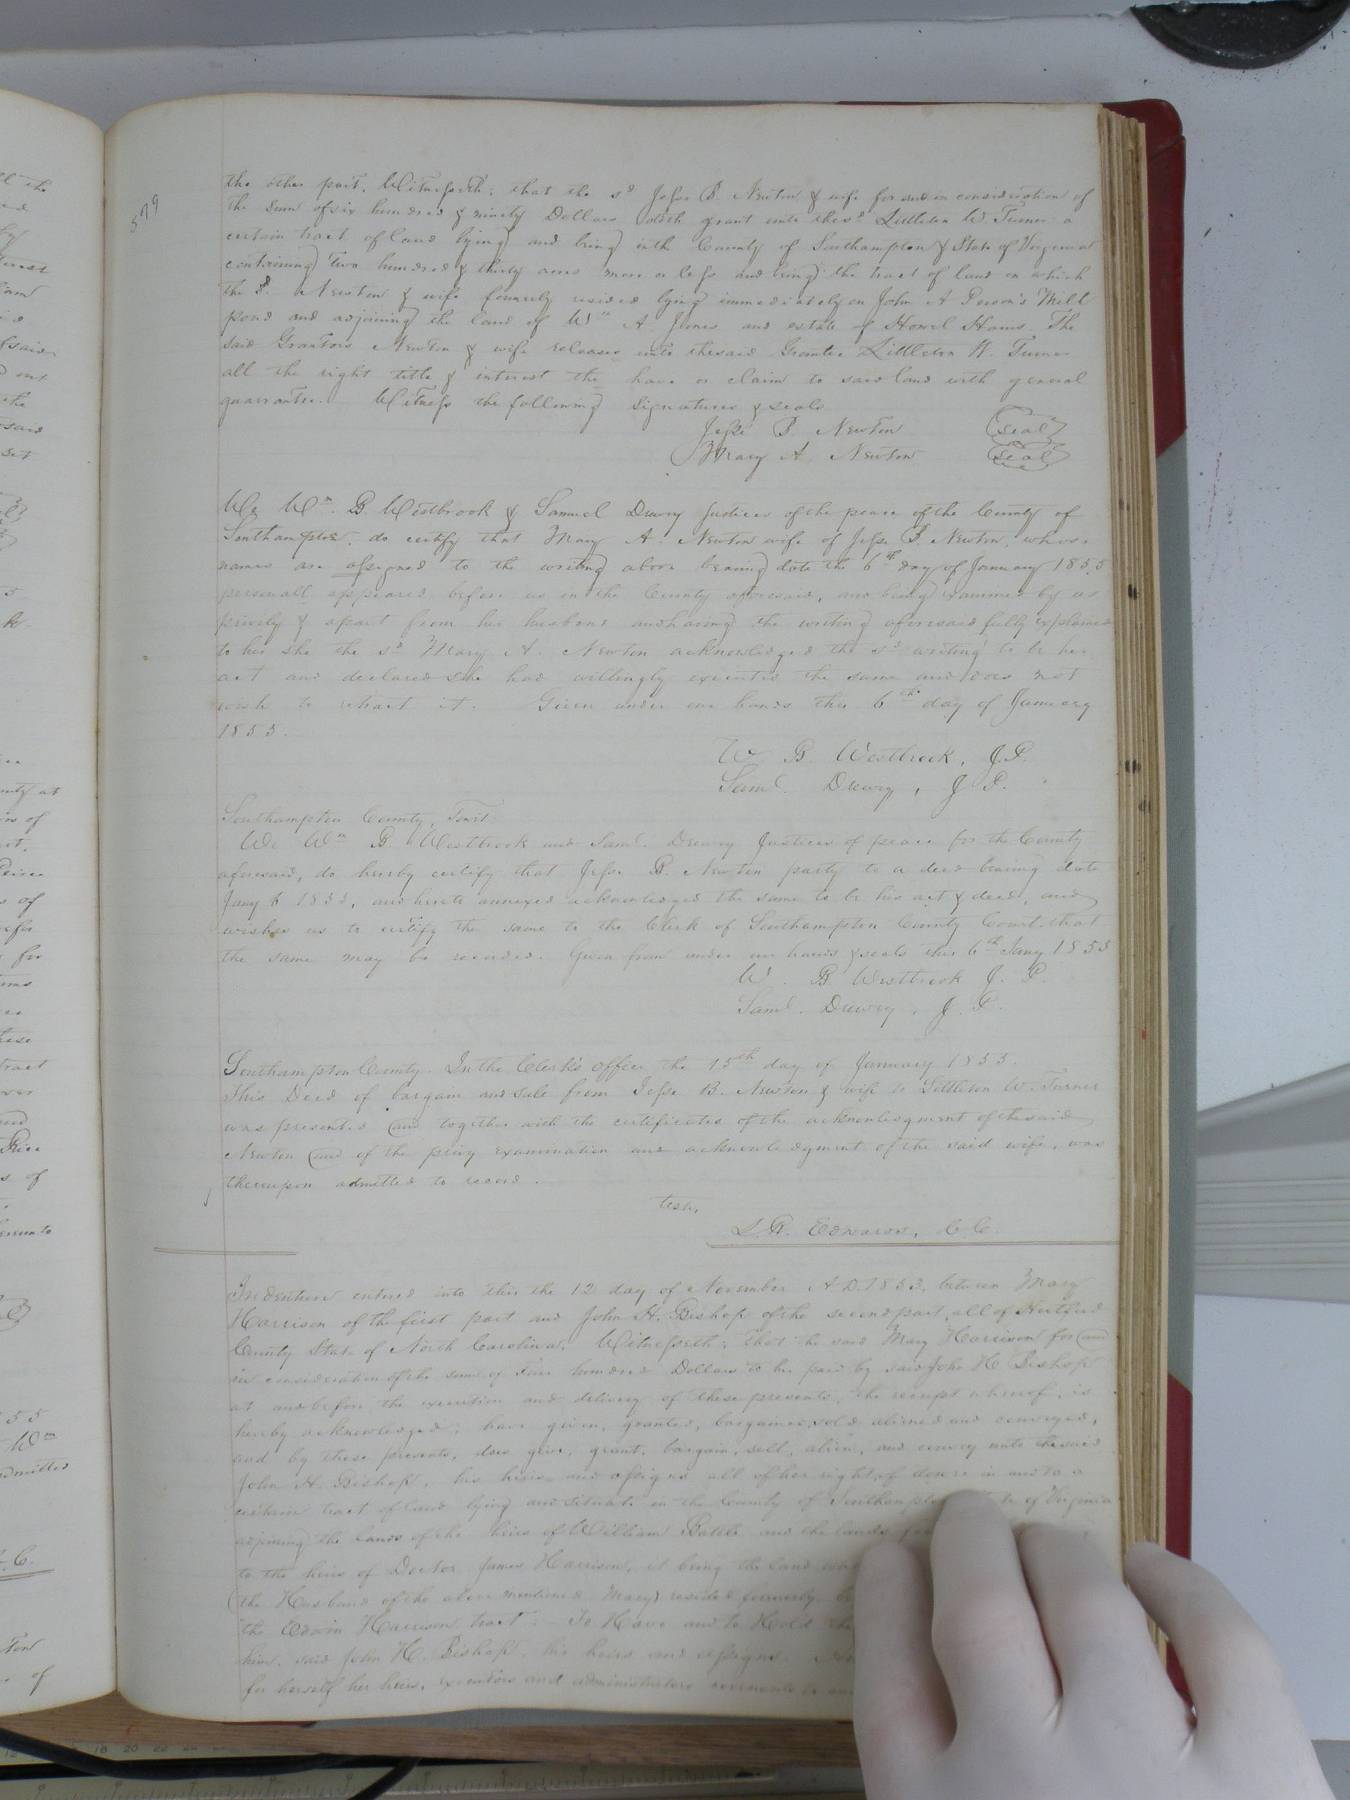 579
the other part. Witnesseth; that the sd Jesse B Newton & wife for and in consideration of
the sum of six hundred & ninety Dollars doth grant unto the sd Littleton W. Turner a
certain tract of land lying and being in the County of Southampton & State of Virginia
containing two hundred & thirty acres more or less and being the tract of land on which
the sd. Newton & wife formerly resided lying immediately on John A Person's Mill
pond and adjoining the land of Wm A. Jones and estate of Howel Harris. The
said Grantors Newton & wife releases unto the said Grantee Littleton W. Turner
all the right title & interest the have or claim to said land with general
guarrantee. Witness the following signatures & seals
Jesse B Newton (seal)
Mary A. Newton (seal)
We Wm. B Westbrook & Samuel Drewry Justices of the peace of the County of
Southampton, do certify that Mary A. Newton wife of Jesse B. Newton, whose
names are assigned to the writing above bearing date the 6th day of January 1855
personall appeared before us in the County aforesaid, and being examined by us
privily & apart from her husband and having the writing aforesaid fully explained
to her she the sd Mary A. Newton acknowledged the sd writing to be her
act and declared she had willingly executed the same and does not
wish to retract it. Given under our hands this 6th day of January
1855.
W B Westbrook, J.P.
Saml. Drewry, J P.
Southampton County, Towit
We Wm B. Westbrook and Saml. Drewry Justices of peace for the County
aforesaid, do hereby certify that Jesse B. Newton party to a deed bearing date
Jany 6 1855, and hereto annexed acknowledged the same to be his act & deed, and
wishes us to certify the same to the Clerk of Southampton County Court that
the same may be recorded. Given from under our hands & seals this 6th Jany 1855
W. B Westbrook J. P.
Saml. Drewry, J. P.
Southampton County. In the Clerk's office the 15th day of January 1855.
This Deed of bargain and sale from Jesse B. Newton & wife to Littleton W. Turner
was presented and together with the certificates of the acknowledgment of the said
Newton and of the privy examination and acknowledgment of the said wife, was
thereupon admitted to record.
teste,
L. R. Edwards, C C.
Indenture entered into this the 12 day of November A.D. 1853, between Mary
Harrison of the first part and John H. Bishop of the second part, all of Hertford
County State of North Carolina. Witnesseth; That the said Mary Harrison for and
in consideration of the sum of Four hundred Dollars to her paid by said John H Bishop
at and before the execution and delivery of these presents, the receipt whereof is
hereby acknowledged; have given, granted, bargained, sold aliened and conveyed,
and by these presents, does give, grant, bargain, sell, alien, and convey unto the said
John H. Bishop, his heirs and assigns all of her right of dower in and to a
certain tract of land lying and situate in the County of Southampton of Virginia
adjoining the lands of the heirs of William Battle and the lands
to the heirs of Doctor James Harrison, it being the land
(the Husband of the above mentioned Mary) resided formerly
the Edwin Harrison tract. To Have and to Hold the
him, said John H. Bishop, his heirs and assigns.
for herself her heirs, executors and administrators covenants